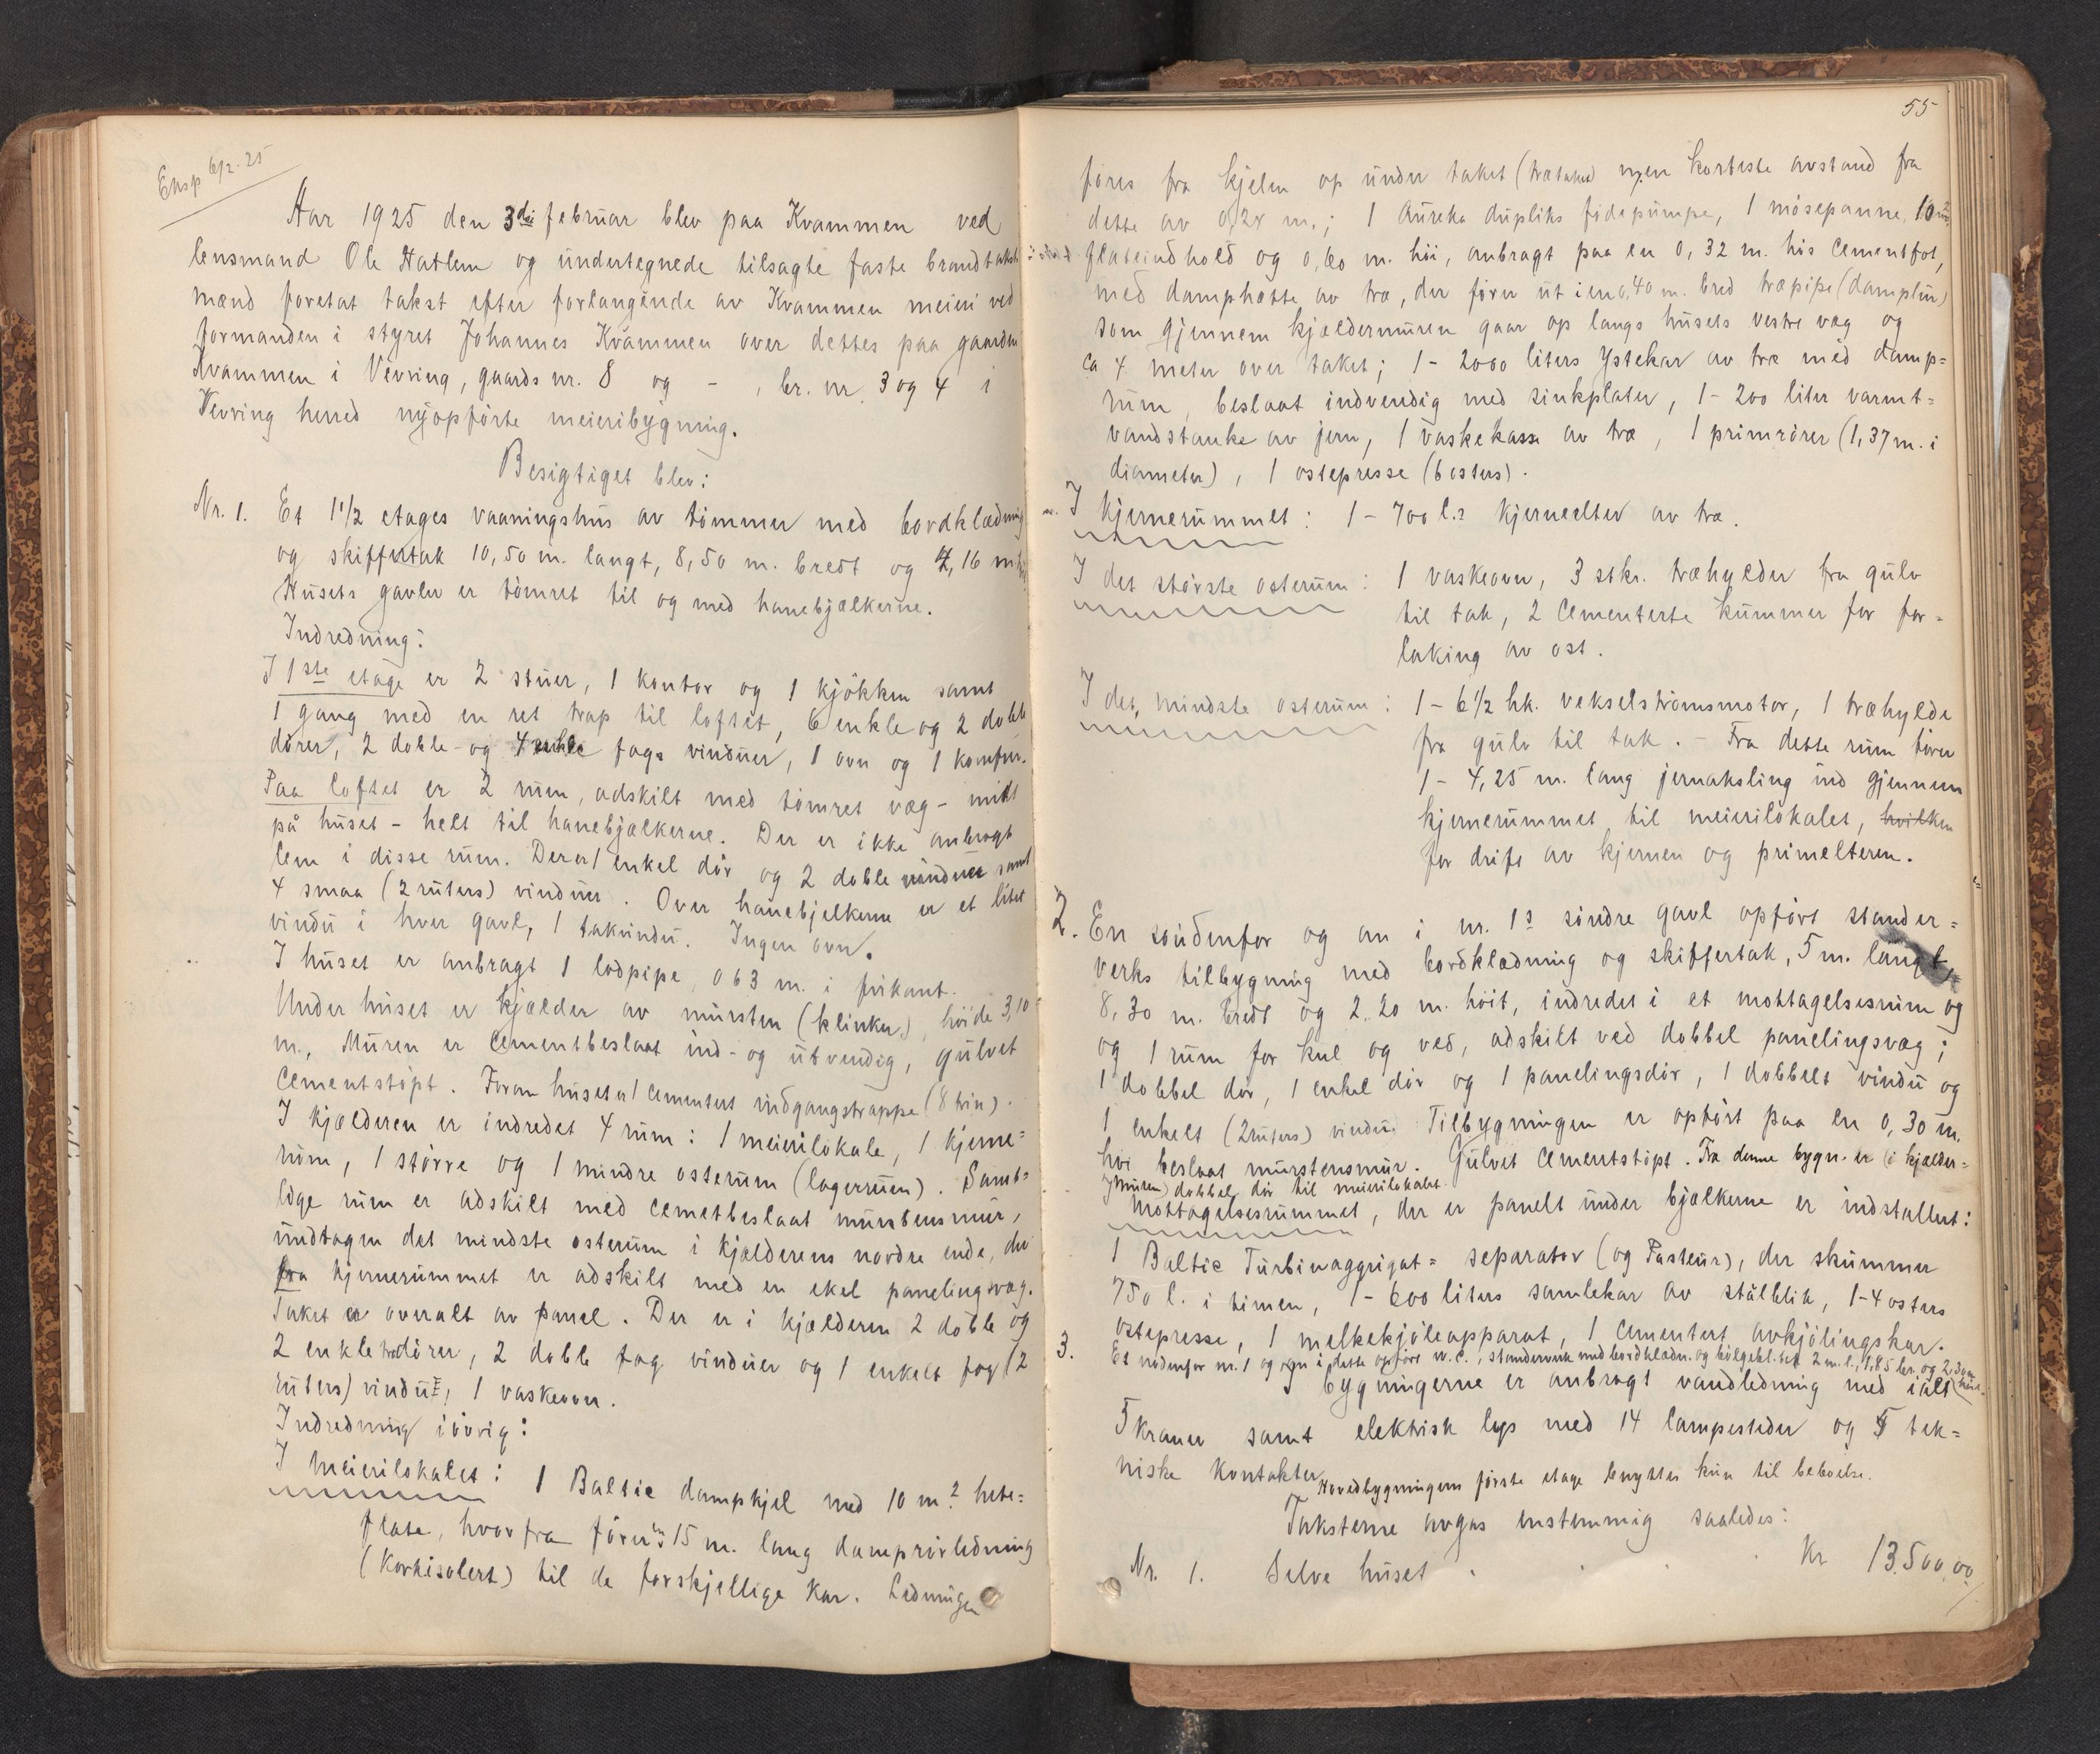 Eksp 6/2.25
Aar 1925 den 3die februar blev paa Kvammen ved
lensmand Ole Hatlem og undertegnede tilsagte faste brandtakst
mænd foretat takst efter forlangende av Kvammen meieri ved
formanden i styret Johannes Kvammen over dettes paa gaarden
Kvammen i Vevring, gaards nr. 8 og - , br. nr. 3 og 4 i
Vevring herred nyopførte meieribygning.
Besigtiget blev:
Nr. 1. Et 1 1/2 etages vaaningshus av tømmer med bordklædning
og skiffertak 10,50 m. langt, 8,50 m. bredt og 4,16 m.
Husets gavler er tømret til og med hanebjælkerne.
Indredning:
I 1ste etage er 2 stuer, 1 kontor og 1 kjøkken samt
1 gang med en ret trap til loftet, 6 enkle og 2 doble
dører, 2 doble- og 4 enkle fags vinduer, 1 ovn og 1 komfur.
Paa loftet er 2 rum, adskilt med tømret væg - midt
på huset - helt til hanebjælkerne. Der er ikke anbragt
lem i disse rum. Der er 1 enkel dør og 2 doble vinduer samt
4 smaa (2 ruters) vinduer. Over hanebjelkerne er et litet
vindu i hver gavl, 1 takvindu. Ingen ovn.
I huset er anbragt 1 lodpipe 0 63 m. i firkant.
Under huset er kjælder av mursten (klinker), høide 3,10
m., Muren er cementbeslaat ind- og utvendig, gulvet
cementstøpt. Foran huset er 1 cementert indgangstrappe (8 trin).
I kjælderen er indredet 4 rum: 1 meierilokale, 1 kjerne=
rum, 1 større og 1 mindre osterum (lagerrum). Samt=
lige rum er adskilt med cemetbeslaat murstensmur,
undtagen det mindste osterum i kjælderens nordre ende, der
fra kjernerummet er adskilt med en ekel panelingsvæg.
Taket er overalt av panel. Der er i kjælderen 2 doble og
2 enkle trædører, 2 doble fag vinduer og 1 enkelt fag (2
ruters) vindu, 1 vaskeovn.
Indredning iøvrig:
I meierilokalet: 1 Baltic dampkjel med 10 m.2 hete=
flate, hvorfra fører en 15 m. lang damprørledning
(korkisolert) til de forskjellige kar. Ledningen
55
føres fra kjelen op under taket (trætaket) men korteste avstand fra
dette av 0,28 m.; 1 Aureka dupliks fødepumpe, 1 mosepanne, 10 m2
flateindhold og 0,60 m. høi, anbragt paa en 0,32 m. høi cementfot,
med damphætte av træ, der fører ut i en 0,40 m. bred træpipe (damplur)
som gjennem kjældermuren gaar op langs husets vestre væg og
ca 4 meter over taket; 1 - 2000 liters ystekar av træ med damp=
rum, beslaat indvendig med sinkplater, 1 - 200 liter varmt=
vandstanke av jern, 1 vaskekasse av træ, 1 primrører (1,37 m. i
diameter), 1 ostepresse (6 osters).
I kjernerummet: 1 - 700 l.s kjerneelter av træ.
I det største osterum: 1 vaskeovn, 3 stkr. træhylder fra gulv
til tak, 2 cementerte kummer for for=
laking av ost.
I det mindste osterum: 1 - 6 1/2 hk. vekselstrømsmotor, 1 træhylde
fra gulv til tak. - Fra dette rum fører
1 - 4,25 m. lang jernaksling ind gjennem
kjernerummet til meierilokalet, hvilken
for drift av kjernen og primelteren.
2. En søndenfor og an i nr. 1s søndre gavl opført stander=
verks tilbygning med bordklædning og skiffertak, 5 m. langt,
8,30 m. bredt og 2.20 m. høit, indredet i et mottagelsesrum og
og 1 rum for kul og ved, adskilt ved dobbel panelingsvæg;
1 dobbel dør, 1 enkel dør og 1 panelingsdør, 1 dobbelt vindu og
1 enkelt (2 ruters) vindu. Tilbygningen er opført paa en 0,30 m.
høi beslaat murstensmur. Gulvet cementstøpt. Fra denne bygn. er (i kjælder=
muren) dobbel dør til meierilokalet.
I Mottagelsesrummet, der er panelt under bjælkerne er indstallert:
1 Baltic Turbinaggrigat= separator (og Pasteur), der skummer
750 l. i timen, 1 - 600 liters samlekar av stålblik, 1 - 4 osters
ostepresse, 1 melkekjøleapparat, 1 cementert avkjølingskar.
3. Et nordenfor nr. 1 og i dette opført w.c., standerverk med bordklædn. og bølgebl.tak 2 m. l., 1,85 br. og 2,30 m. høit.
I bygningerne er anbragt vandledning med ialt
5 kraner samt elektrisk lys med 14 lampesteder og 5 tek=
niske kontakter. Hovedbygningens første etage benyttes kun til beboelse.
Taksterne avgas enstemmig saaledes:
Nr. 1. Selve huset . . . . Kr 13.500,00